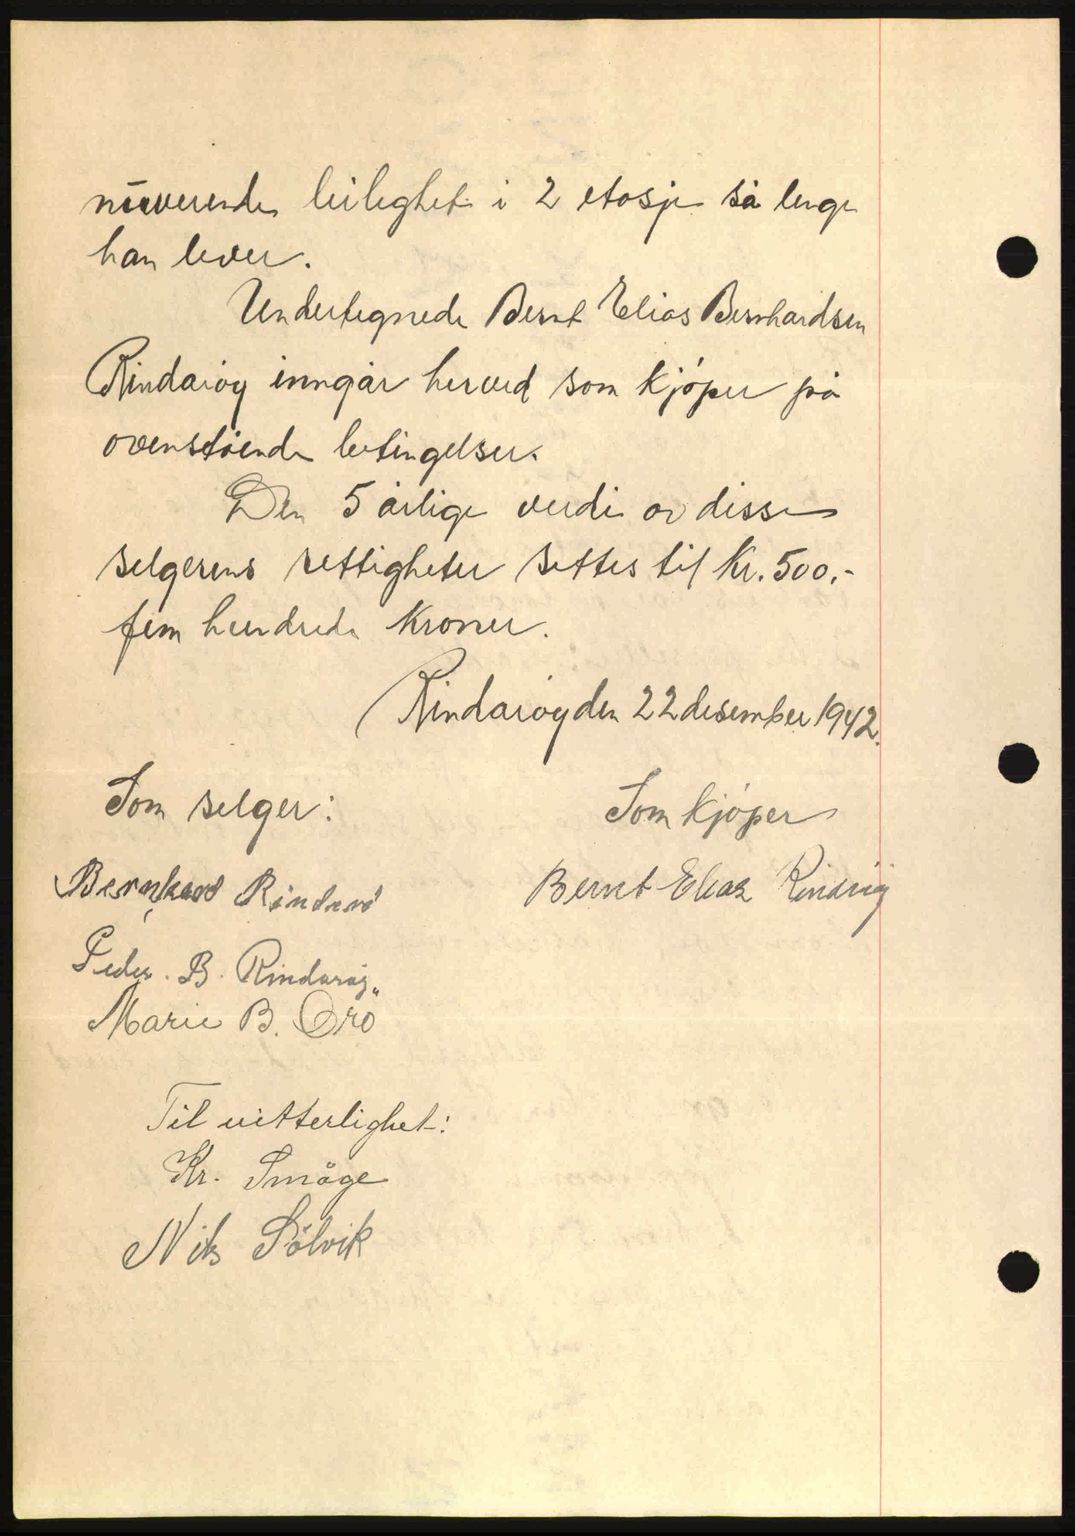 nåværende leilighet i 2 etasje så lenge
han lever.
Undertegnede Bernt Elias Bernhardsen
Rindarøy inngår herved som kjøper på
ovenstående betingelser.
Den 5 årlige verdi av disse
selgerens rettigheter settes til Kr. 500.-
fem hundrede kroner.
Rindarøy den 22 desember 1942.
Som selger:
Som kjøper
Bernhard Rindarø
Bernt Elias Rindrøy
Peder. B. Rindarøy
Marie B. Oro
Til vitterlighet:
Kr. Småge
Nils Sölvik